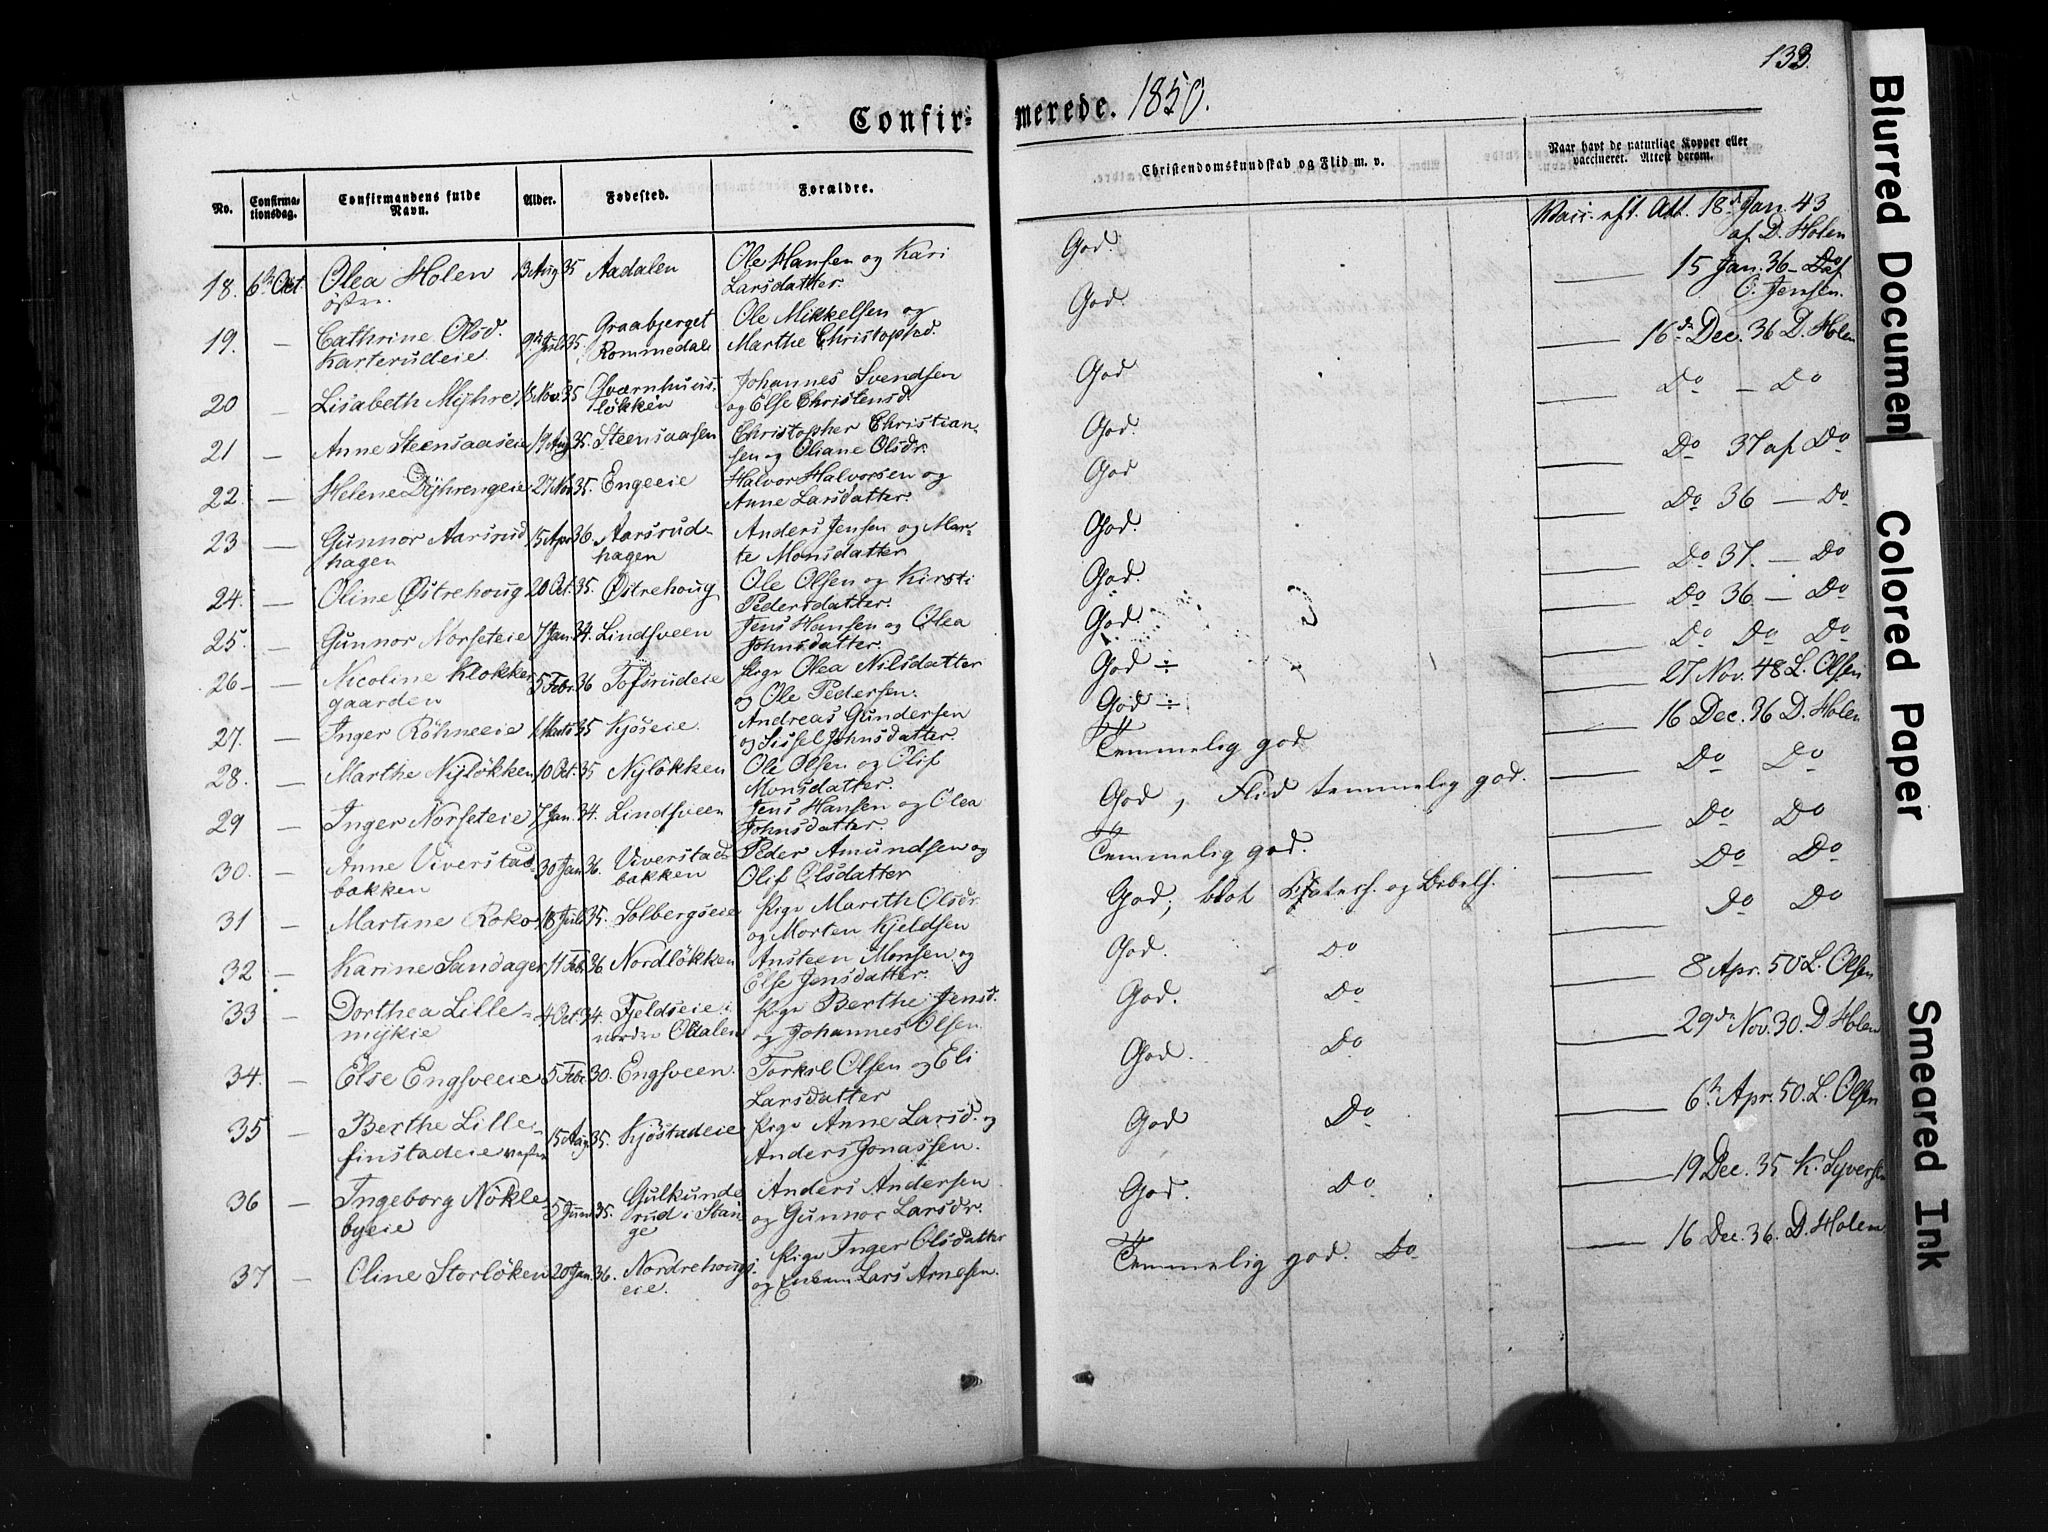 133.
Confir-
merede. 1850.
No.
Confirma-
tionsdag.
Confirmandens fulde
Navn.
Alder.
Fødested.
Forældre.
Christendomskundskab og Flid m. v.
Naar havt de naturlige Kopper eller
vaccineret. Attest derom.
18. 6te Oct Olea Holen 13 Aug 35 Aadalen Ole Hansen og Kari God. Vacc. Att. 18de Jan. 43
østre Larsdatter. af D. Holen
19. — Cathrine Olsd. 9de Juli 35. Graabjerget Ole Mikkelsen og God. — 15 Jan. 36 – Do af
Karterudeie Rommedal Marthe Christophed. C. Jensen.
20 — Lisabeth Myhre 18 Nov. 35 Qværnhuus Johannes Svendsen God — 16de Dec. 36 D. Holen
løkken og Else Christensd.
21 — Anne Steensaaseie 19 Aug 35. Steensaasen Christopher Christian- God. — Do – Do
sen og Oliane Olsdr.
22. — Helene Dyhrengeie 27 Nov 35. Engeeie Halvor Halvorsen og God — Do 37 af Do
Anne Larsdatter.
23 — Gunnor Aarsrud 15 Apr 36. Aarsrud- Anders Jensen og Mar- God. — Do 36 – Do
hagen hagen te Monsdatter
24. — Oline Østrehoug 20 Oct. 35. Østrehoug Ole Olsen og Kirsti God. — Do 37. – Do
Pedersdatter.
25. — Gunnor Norseteie 7 Jan. 34. Lindsveen Jens Hansen og Olea God. — Do 36 – Do
Johnsdatter.
26 — Nicoline Klokker 5 Febr. 36 Tofsrudeie Pige Olea Nilsdatter God ÷ — Do Do Do
gaarden og Ole Pedersen.
27. — Inger Röhneeie 1 Marts 35 Kjøseie. Andreas Gundersen God ÷ — 27 Nov. 48 L. Olsen
og Sissel Johnsdatter.
28. — Marthe Nyløkken 10 Oct. 35 Nyløkken Ole Olsen og Olif Temmelig god — 16 Dec. 36 D. Holen
Monsdatter.
29 — Inger Norseteie 7 Jan. 34. Lindsveen Jens Hansen og Olea God, Flid temmelig god. — Do Do
Johnsdatter.
30. — Anne Viverstad 30 Jan 36. Viverstad- Peder Amundsen og Temmelig god. — Do Do
bakken bakken Olif Olsdatter
31 — Martine Roko 18 Juli 35. Solbergseie Pige Marith Olsdr. God; blot Catech. og Bibelh. — Do Do
og Morten Kjeldsen
32 — Karine Sandager 11 Febr. 36 Nordløkken Ansteen Monsen og God. Do — Do Do
Else Jensdatter.
33 — Dorthea Lille- 4 Oct. 34. Fjeldseie i Pige Berthe Jensd. God. Do — 8 Apr. 50 L. Olsen
mykie nordre Odalen og Johannes Olsen
34. — Else Engsveeie 5 Febr. 30. Engsveen. Torkel Olsen og Eli God. Do — 29de Nov. 30. D Holen
Larsdatter
35 — Berthe Lille- 15 Aug. 35. Kjøstadeie Pige Anne Larsd. og God Do — 6te Apr. 50. L. Olsen
finstadeie vestre Anders Jonassen.
36 — Ingeborg Nökle- 5 Juni 35. Gulkunde- Anders Andersen God. Do — 19 Dec. 35 K. Syversen
byeie rud i Stan- og Gunnor Larsdr.
ge
37 — Oline Storløken 20 Jan. 36. Nordrehougs- Pige Inger Olsdatter Temmelig god. Do — 16 Dec. 36. D. Holen
eie. og Enkem. Lars Arnesen.
Blurred Documen
Colored Paper
Smeared Ink